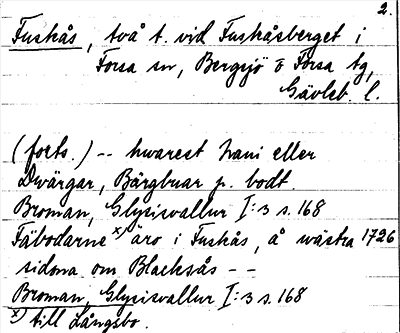 2.
Fuskås, två t. vid Fuskåsberget i
Forsa sn, Bergsjö & Forsa tg,
Gävleb. l.
(forts.) -- hwarest hani eller
Dwärgar, Bärgbuar p. bodt.
Broman, Glysisvallur I:3 s. 168
Fäbodarne x) äro i Fuskås, å wästra 1726
sidona om Blacksås - -
Broman, Glysisvallur I:3 s. 168
x) till Långsbo.